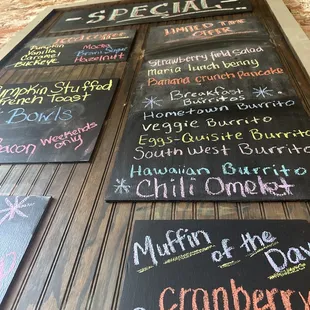 - SPECIAL -
Pumpkin
Mocha
Vanilla
Brown Sugar
Caramel
Hazelnut
Buckeye
Pumpkin Stuffed
French Toast
Bowls
Bacon Weekends
only
Limited Time
Strawberry field Salad
Maria lunch benny
Banana crunch Pancake
Breakfast
Burritos
Hometown Burrito
veggie Burrito
Eggs-Quisite Burrito
South West Burrito
Hawaiian Burrito
Chili Omelet
Muffin of the Day
cranberry